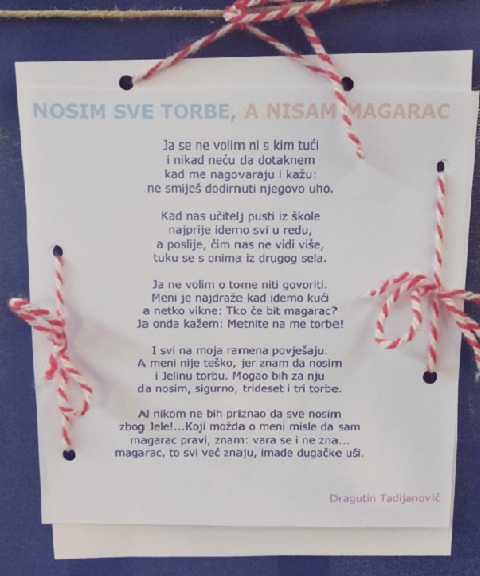 NOSIM SVE TORBE, A NISAM MAGARAC
Ja se ne volim ni s kim tući
i nikad neću da dotaknem
kad me nagovaraju i kažu:
ne smiješ dodirnuti njegovo uho.
Kad nas učitelj pusti iz škole
najprije idemo svi u redu,
a poslije, čim nas ne vidi više,
tuku se s onima iz drugog sela.
Ja ne volim o tome niti govoriti.
Meni je najdraže kad idemo kući
a netko vikne: Tko će bit magarac?
Ja onda kažem: Metnite na me torbe!
I svi na moja ramena povješaju.
A meni nije teško, jer znam da nosim
i Jelinu torbu. Mogao bih za nju
da nosim, sigurno, trideset i tri torbe.
Al nikom ne bih priznao da sve nosim
zbog Jele!...Koji možda o meni misle da sam
magarac pravi, znam: vara se i ne zna...
magarac, to svi već znaju, imade dugačke uši.
Dragutin Tadijanović